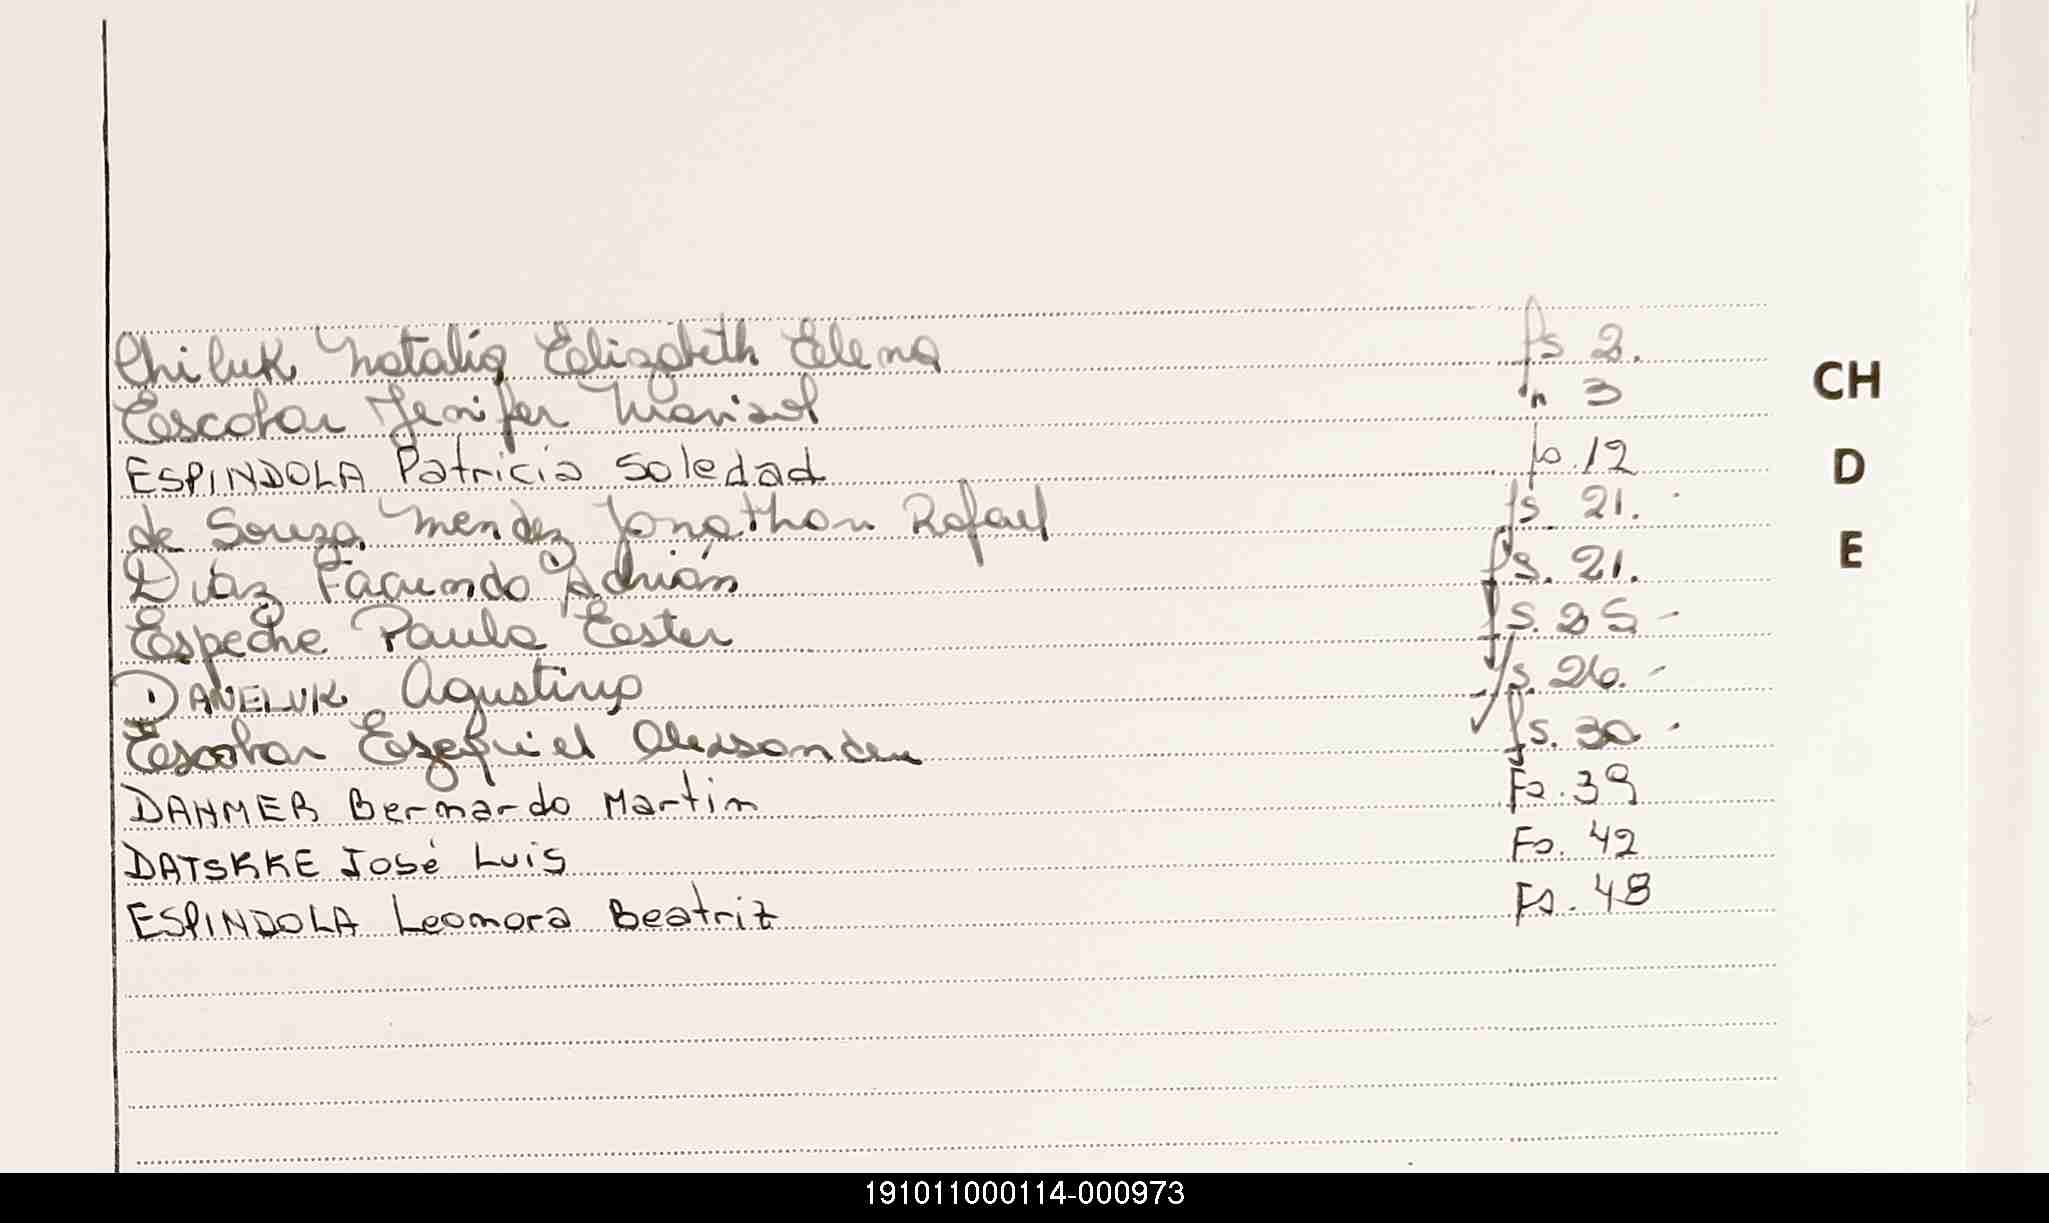 Chiluk Natalia Elizabeth Elena fs 2.
Escobar Jenifer Marisol " 3
ESPINDOLA Patricia Soledad fo. 12
de Souza Mendez Jonathan Rafael fs. 21.
Diaz Facundo Adrián fs. 21.
Espeche Paula Ester fs. 25 -
DANELUK Agustina fs. 26. -
Escobar Ezequiel Alexsander fs. 30 -
DAHMER Bernardo Martin Fs. 39
DATSKKE José Luis Fs. 42
ESPINDOLA Leonora Beatriz Fs. 48
CH
D
E
191011000114-000973